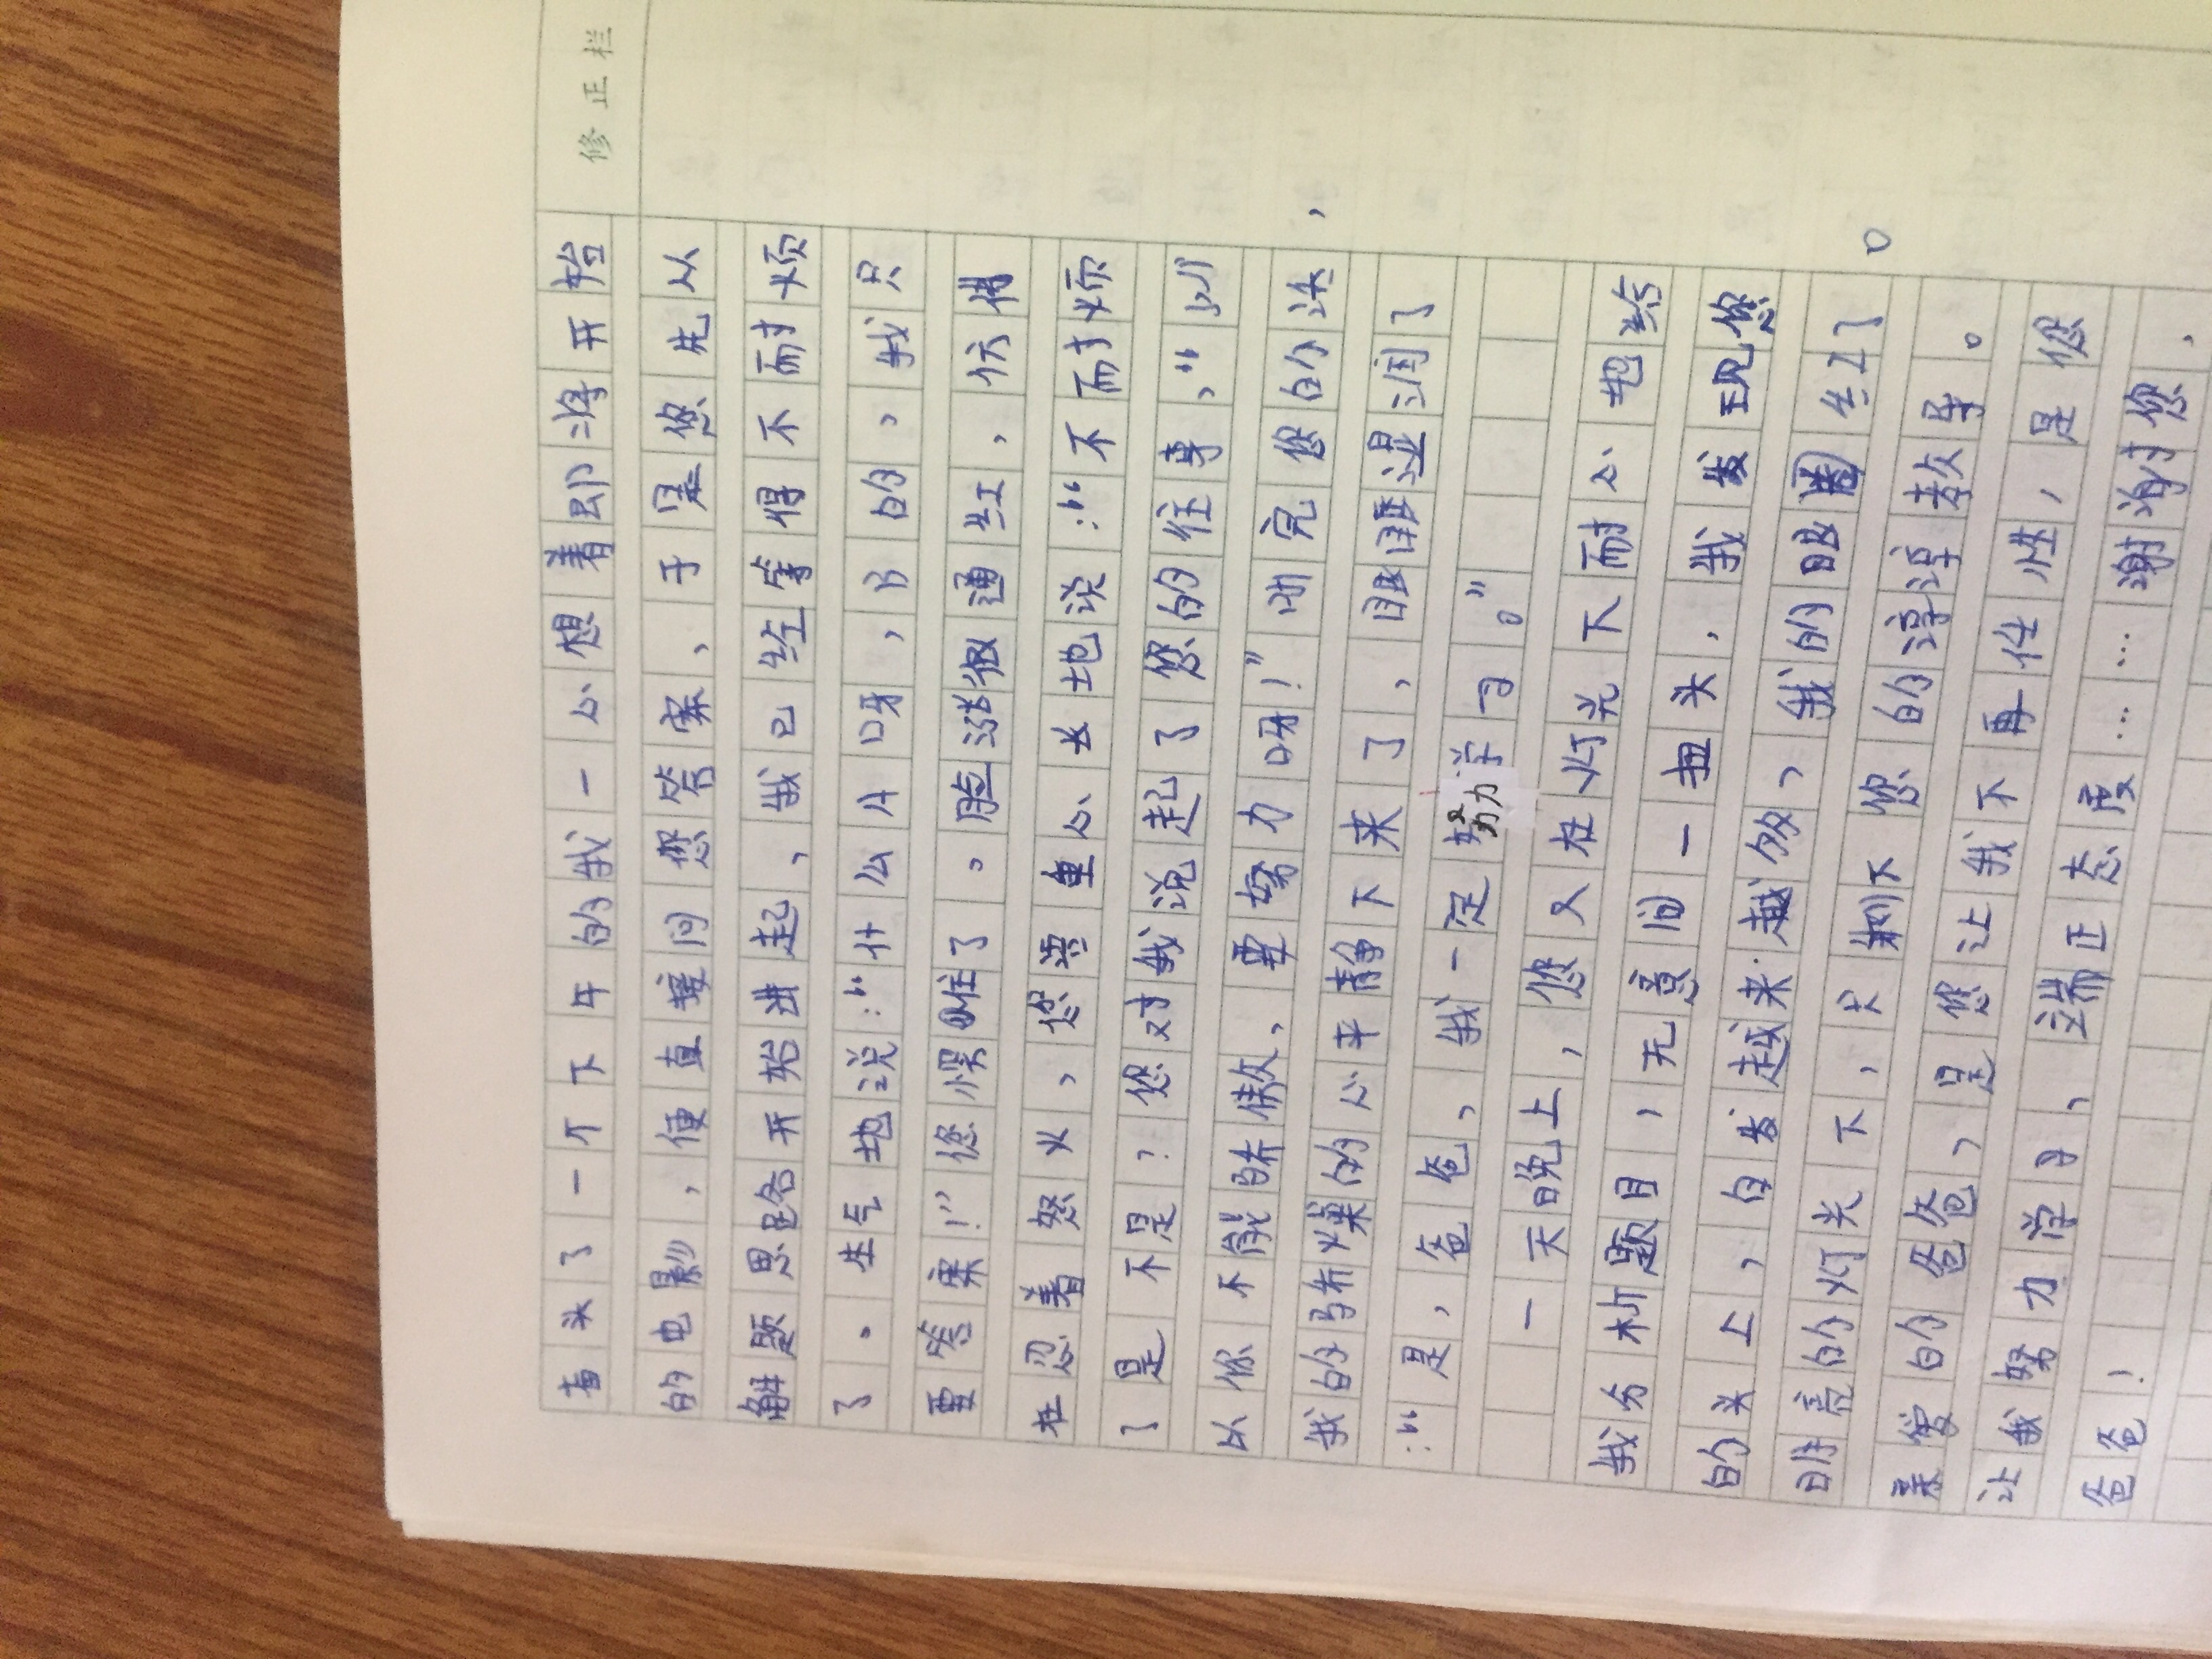 修正栏
着头了一个下午的我一心想着即将开始
的电影,便直接问您答案、于是您先从
解题思路开始讲起,我已经等得不耐烦
了。生气地说:“什么人呀,真的,我只
要答案!”您愣住了。脸涨极通红,仿佛
在忍着怒火,您语重心长地说:“不耐烦
了是不是?您对我说起了您的往事,“所
以你不能骄傲、要努力呀!”听完您的话,
我的骄躁的心平静下来了,眼眶湿润了
:“是,爸爸,我一定努力学习。”
一天晚上,您又在灯光下耐心地给
我分析题目,无意间一扭头,我发现您
的头上,白发越来越多,我的眼圈红了。
昨亮的灯光下,大刻下您的谆谆教导。
亲爱的爸爸,是您让我不再任性,是您
让我努力学习,端正态度……谢谢您,
爸爸!